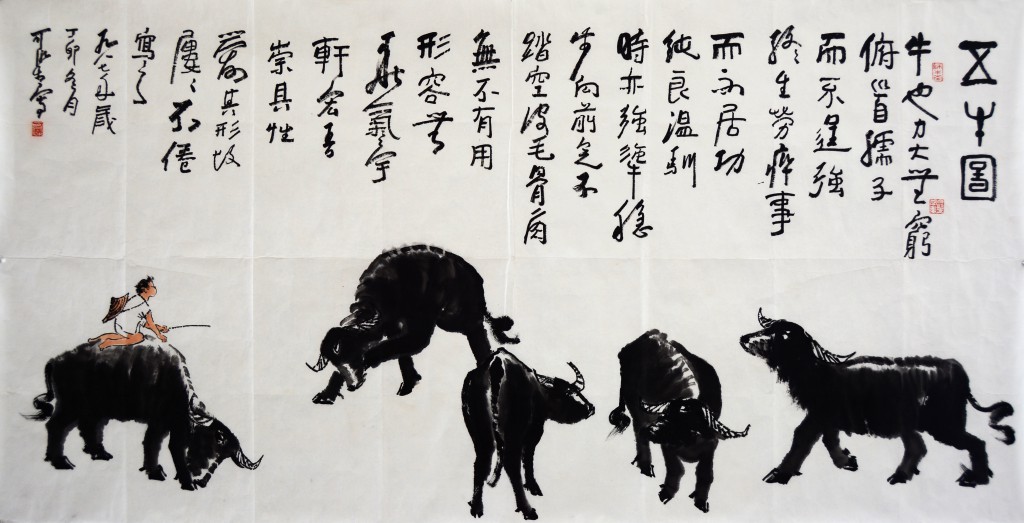 五牛圖
牛也力大無窮
俯首孺子
而不逞強
終生勞瘁事
而不居功
純良溫馴
時亦強犟穩
步向前足不
踏空皮毛骨角
無不有用
形容無
華氣宇
軒宏吾
崇其性
愛其形故
屢屢不倦
寫之
一九八七年歲
丁卯冬月
可染